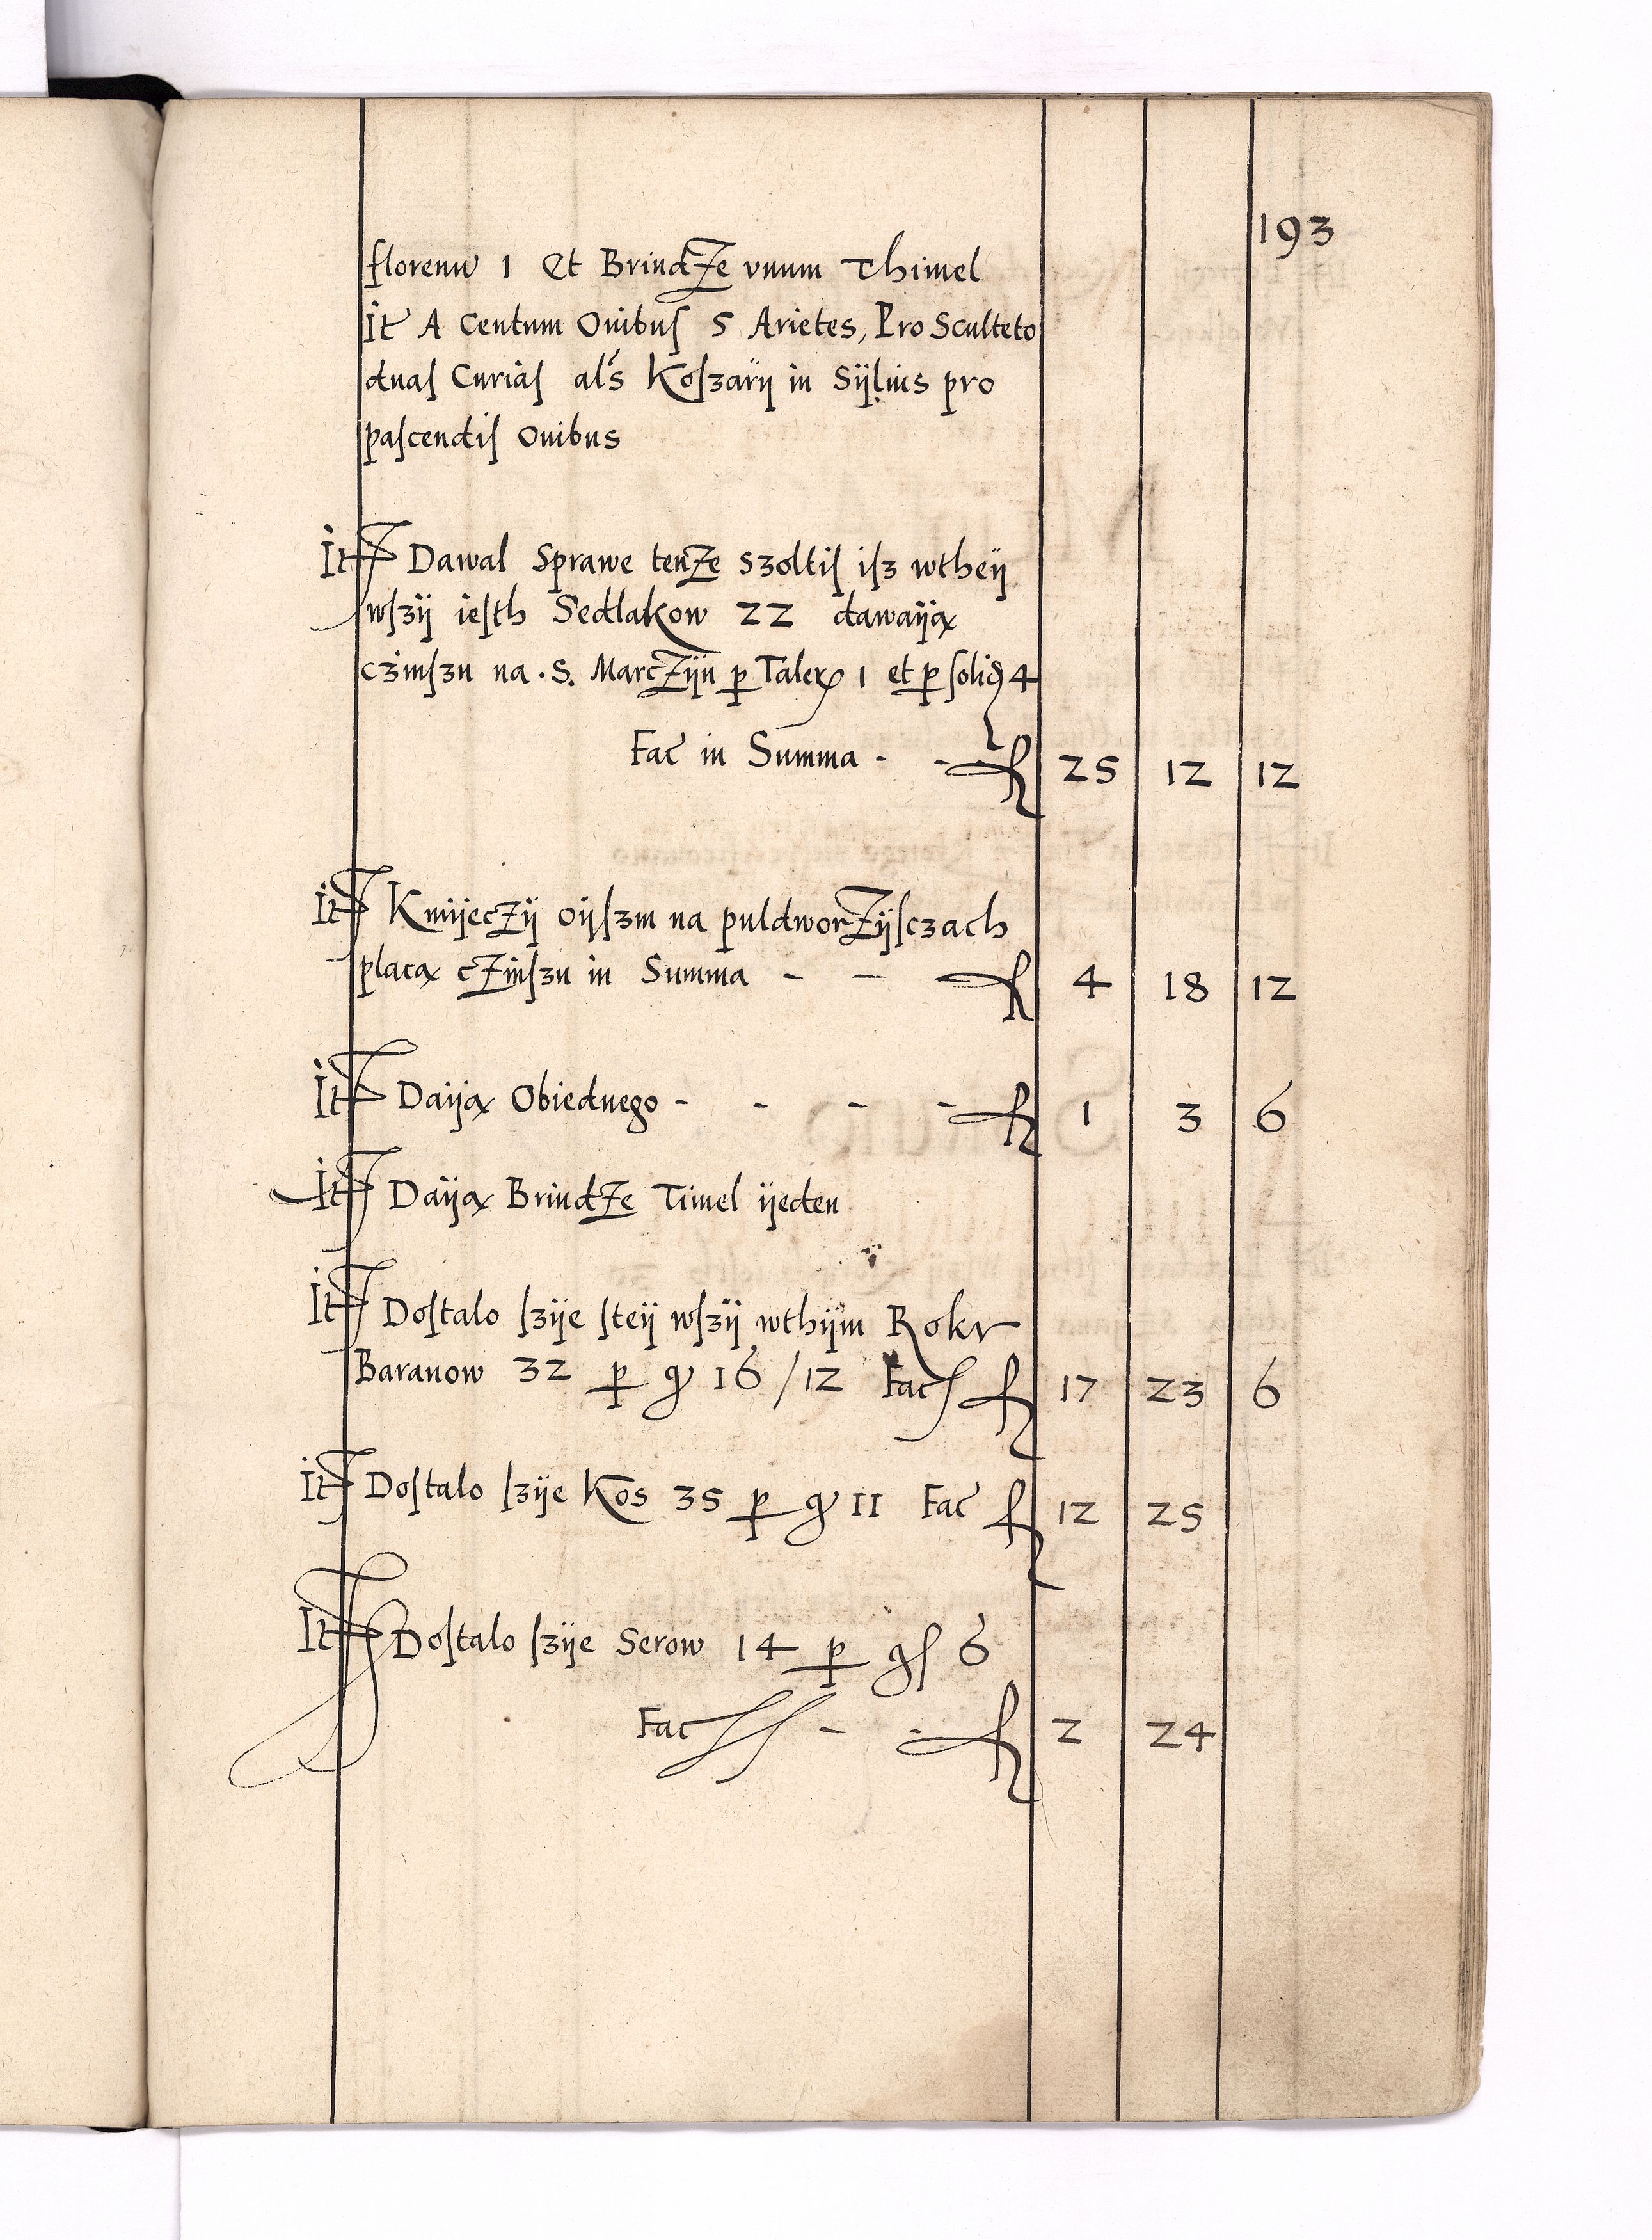 193
florenu 1 Et Brindze vnum Thimel
It A Centum Ouibus 5 Arietes, Pro Sculteto
duas Curias als Koszarÿ in Sÿluis pro
pascendis Ouibus
It Dawal Sprawe tenze szoltis isz wtheÿ
wszÿ iesth Sedlakow 22 dawaÿą
czinszu na .S. Marczÿn p Taler 1 et p solid 4
Fac in Summa - - f 25 12 12
It Kmÿeczÿ oÿszm na puldworzÿsczach
placą czinszu in Summa - - f 4 18 12
It Daÿą Obiednego - - - - f 1 3 6
It Daÿą Brindze Timel ÿeden
It Dostalo szÿe steÿ wszÿ wthÿm Roku
Baranow 32 p g 16/12 Fac f 17 23 6
It Dostalo szÿe Kos 35 p g 11 Fac f 12 25
It Dostalo szÿe Serow 14 p gs 6
Fac - - f 2 24